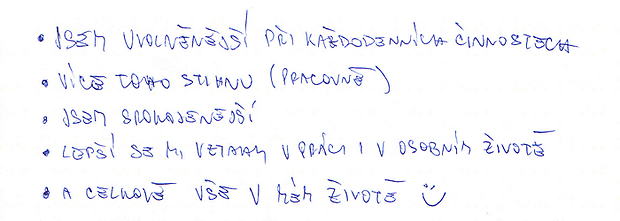 • JSEM UVOLNĚNĚJŠÍ PŘI KAŽDODENNÍCH ČINNOSTECH
• VÍCE TOHO STIHNU (PRACOVNĚ)
• JSEM SPOKOJENĚJŠÍ
• LEPŠÍ SE MI VZTAHY V PRÁCI I V OSOBNÍM ŽIVOTĚ
• A CELKOVĚ VŠE V MÉM ŽIVOTĚ :)